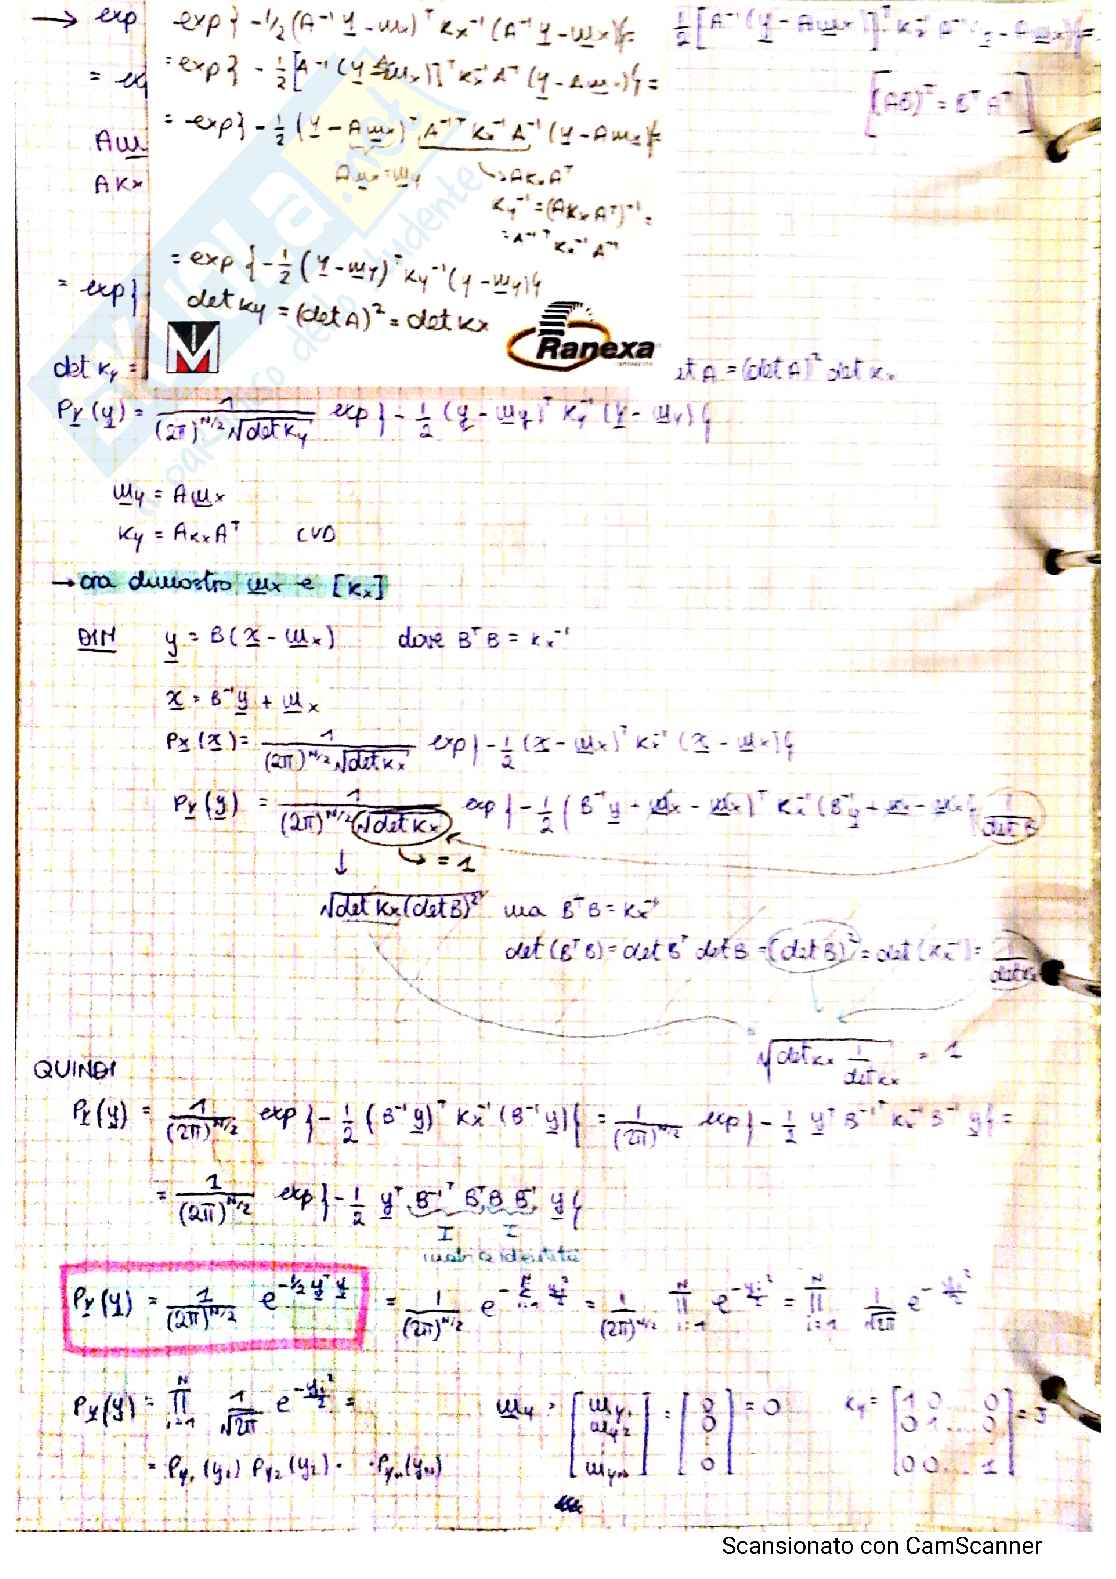 → exp exp{ -1/2 (A⁻¹ y - mx)ᵀ Kx⁻¹ (A⁻¹ y - mx)}= 1/2 [A⁻¹ (y - A mx)]ᵀ Kx⁻¹ A⁻¹ (y - A mx)}=
= ex = exp{ - 1/2 [A⁻¹ (y - A mx)]ᵀ Kx⁻¹ A⁻¹ (y - A mx)}= [(AB)ᵀ = Bᵀ Aᵀ]
= exp{ - 1/2 (y - A mx)ᵀ A⁻¹ᵀ Kx⁻¹ A⁻¹ (y - A mx)}=
A m A mx = my → A Kx Aᵀ
A Kx Ky⁻¹ = (A Kx Aᵀ)⁻¹ =
= A⁻¹ᵀ Kx⁻¹ A⁻¹
= exp{ = exp { - 1/2 (y - my)ᵀ Ky⁻¹ (y - my)}
det Ky = (det A)² = det Kx
M Ranexa
det Ky = et A = (det A)² det Kx
Py (y) = 1/((2π)^N/2 √det Ky) exp{ - 1/2 (y - my)ᵀ Ky⁻¹ (y - my)}
my = A mx
Ky = A Kx Aᵀ CVD
→ ora dimostro mx e [Kx]
DIM y = B(x - mx) dove Bᵀ B = Kx⁻¹
x = B⁻¹ y + mx
Px (x) = 1/((2π)^N/2 √det Kx) exp{ - 1/2 (x - mx)ᵀ Kx⁻¹ (x - mx)}
Py (y) = 1/((2π)^N/2 √det Kx) exp{ - 1/2 (B⁻¹ y + mx - mx)ᵀ Kx⁻¹ (B⁻¹ y + mx - mx)} 1/det B
↓ → = 1
√det Kx (det B)² ma Bᵀ B = Kx⁻¹
det (Bᵀ B) = det Bᵀ det B = (det B)² = det (Kx⁻¹) = 1/det Kx
√det Kx 1/det Kx = 1
QUINDI
Py (y) = 1/(2π)^N/2 exp{ - 1/2 (B⁻¹ y)ᵀ Kx⁻¹ (B⁻¹ y)} = 1/(2π)^N/2 exp{ - 1/2 yᵀ B⁻¹ᵀ Kx⁻¹ B⁻¹ y} =
= 1/(2π)^N/2 exp{ - 1/2 yᵀ B⁻¹ᵀ Bᵀ B B⁻¹ y}
I I
matrice identità
Py (y) = 1/(2π)^N/2 e^(-1/2 yᵀ y) = 1/(2π)^N/2 e^(-Σ i=1 N yi²/2) = 1/(2π)^N/2 ∏ i=1 N e^(-yi²/2) = ∏ i=1 N 1/√2π e^(-yi²/2)
Py (y) = ∏ i=1 N 1/√2π e^(-yi²/2) = my = [my1 my2 ⋮ myN] = [0 0 ⋮ 0] = 0 Ky = [1 0 0 0 1 ... 0 0 0 ... 1] = I
= Py1 (y1) Py2 (y2) · · PyN (yN)
Scansionato con CamScanner